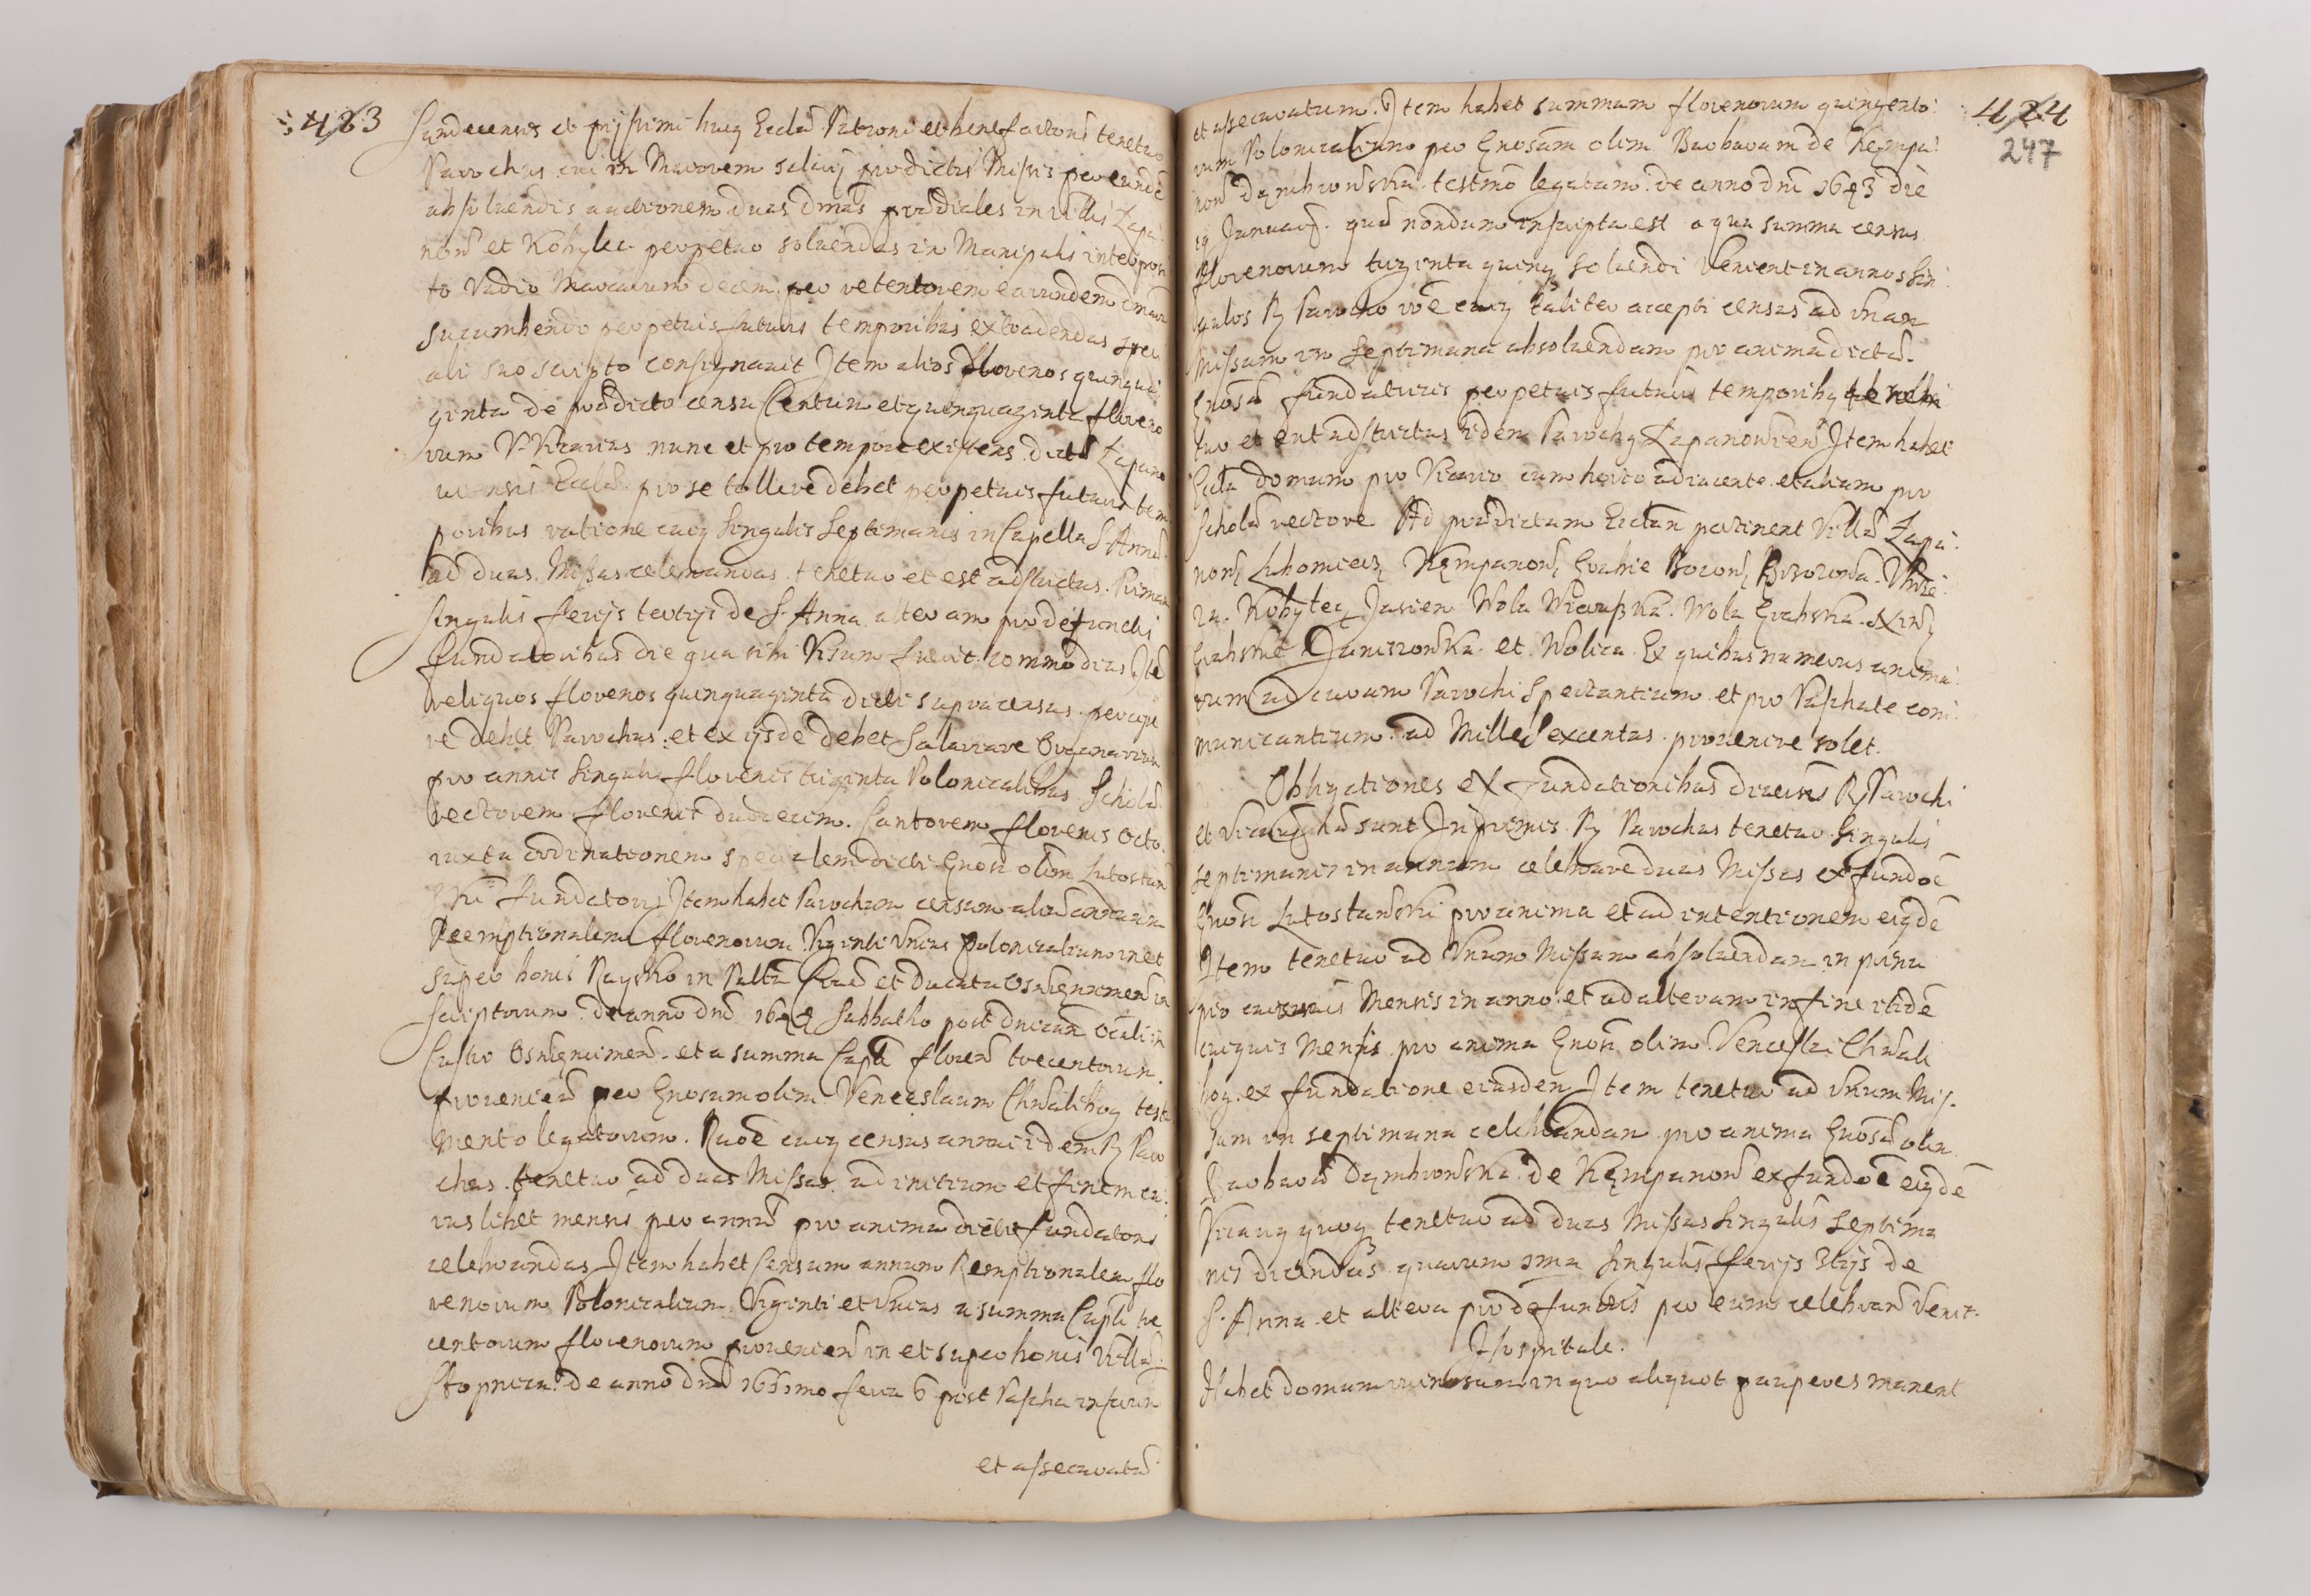 423
Sandecensis et pijssimi huiq Eccłae Patroni et benefactoris tenetur
Parochus cui in Maiorem salarij praedictis Missis per eundē
absoluendis auctionem duas dmas praediales in villis Łapa
now et Kobylec perpetuo soluendas in Manipulis interposi
to Vadio Marcarum decem per retentorem earundem dmarū
sucumbendo perpetuis futuris temporibus extradendas speci
ali suo scripto consignauit Item alios florenos quinqua
ginta de praedicto censu Centum et quinquaginta floreno
rum V. Vicarius nunc et pro tempore existens dictae Łapano
uiensis Ecclae pro se tollere debet perpetuis futuris tem
poribus ratione cuiq singulis Septimanis in Capella S. Annae
ad duas Missas celebrandas tenetur et est adstrictus. Primam
singulis ferijs tertijs de S. Anna alteram pro defunctis
fundatoribus die qua sibi visum fuerit commodius
reliquos florenos quinquaginta dicti supra census percipe
re debet Parochus et ex ijsdē debet salariare Organarium
pro annis singulis florenis triginta Polonicalibus Scholae
rectorem florenis duodecim. Cantorem florenis octo
iuxta ordinationem specialem dicti Gnosi olim Lutostan
ski fundatoris Item habet Parochum censum alium annuum
Reemptionalem florenorum Viginti Vnius Polonicalium in et
super bonis Raysko in Paltu Crac et Ducatu Osviencimen in
scriptorum de anno dni 1644 Sabbatho post dnicam Oculi in
Castro Osviencimen et a summa Capli floren trecentorum
prouenien per Gnosum olim Venceslaum Chwalibog testa
mento legatorum. Raōe cuiq census annui idem R Paro
chus tenetur ad duas Missas ad initium et finem cu
ius libet mensis per annū pro anima dicti fundatoris
celebrandas Item habet Censum annum Reemptionalem flo
renorum Polonicalium Viginti et Vnius a summa Capli tre
centorum florenorum prouenien in et super bonis Villae
Stopnica de anno dni 1651mo feria 6 post Pascha inscriptū
et assecuratū
424
247
et assecuratum. Item habet summam florenorum quingento
rum Polonicalium per Gnosam olim Barbaram de Kempa
now Dąmbrowska testmo legatam de anno dni 1643 die
19 Januarij quae nondum inscripta est a qua summa census
florenorum triginta quinq soluendi venient in annos sin
gulos R Parocho rōe cuiq taliter accepti census ad vnam
Missam in septimana absoluendam pro anima dictae
Gnosae fundatricis perpetuis futuris temporibq tenebi
tur et erit adstrictus idem Parochq Łapanouien Item habet
Eccla domum pro Vicario cum horto adiacente et aliam pro
Scholae rectore Ad praedictam Ecclam pertinent Villae Łapa
now, Lubomierz, Kempanow, Grabie Boczow, Brzozowa. Vbrze
za. Kobyłec, Jasien Wola Wieruszka. Wola Grabska.
Grabskie Damizowka et Wolica Ex quibus numerus anima
rum ad curam Parochi spectantium et pro Paschate com
municantium ad Mille Sexcentas prouenire solet.
Obligationes ex fundationibus diuersis R Parochi
et Vicarij hae sunt Inprimis R Parochus tenetur singulis
septimanis in annum celebrare duas Missas ex fundōe
Gnosi Lutostanski pro anima et ad intentionem eiqdē
Item tenetur ad Vnam Missam absoluendam in princi
pio cuiusuis Mensis in anno et ad alteram in fine itidē
cuiquis Mensis pro anima Gnosi olim Vencesłai Chwali
bog ex fundatione eiusdem Item tenetur ad vnam Mis
sam in septimana celebrandam pro anima Gnosae olim
Barbarae Dąmbrowska de Kempanow ex fundōe eiqdē
Vicariq quoq tenetur ad duas Missas singulis septima
nis dicendas quarum 1ma singulis ferijs 3tijs de
S. Anna et altera pro defunctis per eum celebrari venit.
Hospitale.
Habet domum ruinosam in quo aliquot pauperes manent